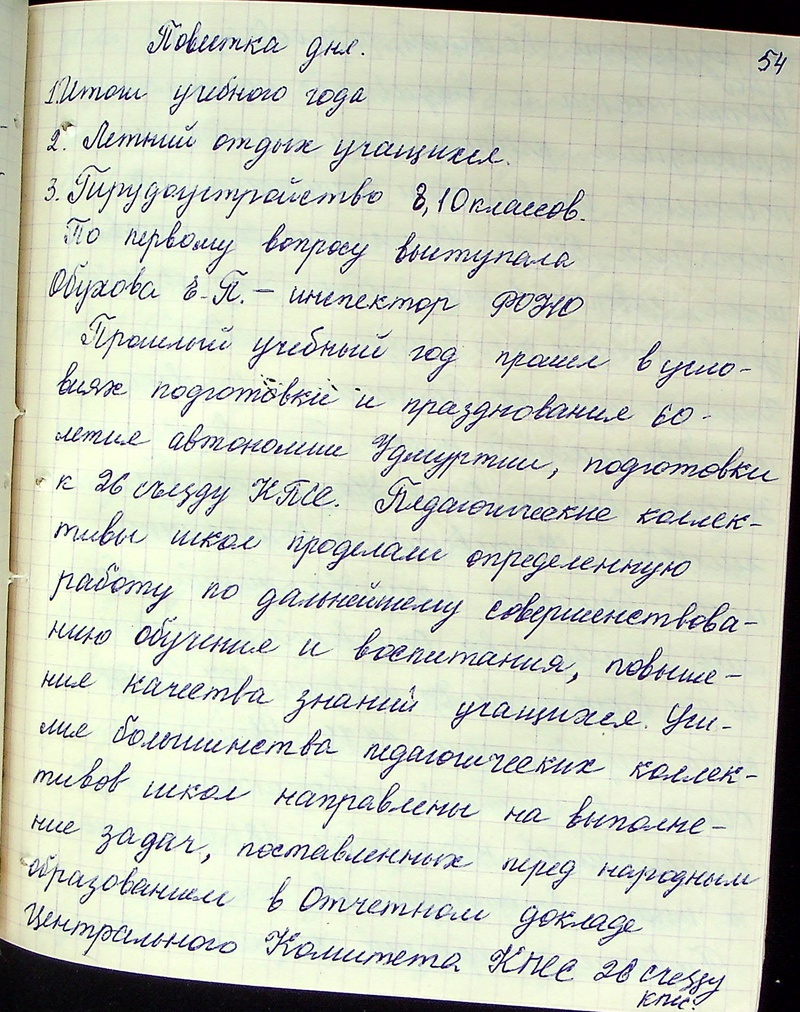 Повестка дня.
54
1. Итоги учебного года
2. Летний отдых учащихся.
3. Трудоустройство 8, 10 классов.
По первому вопросу выступала
Обухова Е.П. – инспектор РОНО
Прошлый учебный год прошел в усло-
виях подготовки и празднования 60-
летия автономии Удмуртии, подготовки
к 26 съезду КПСС. Педагогические коллек-
тивы школ проделали определенную
работу по дальнейшему совершенствова-
нию обучения и воспитания, повыше-
ния качества знаний учащихся. Уси-
лия большинства педагогических коллек-
тивов школ направлены на выполне-
ние задач, поставленных перед народным
образованием в Отчетном докладе
Центрального Комитета КПСС 26 съезду
КПСС.